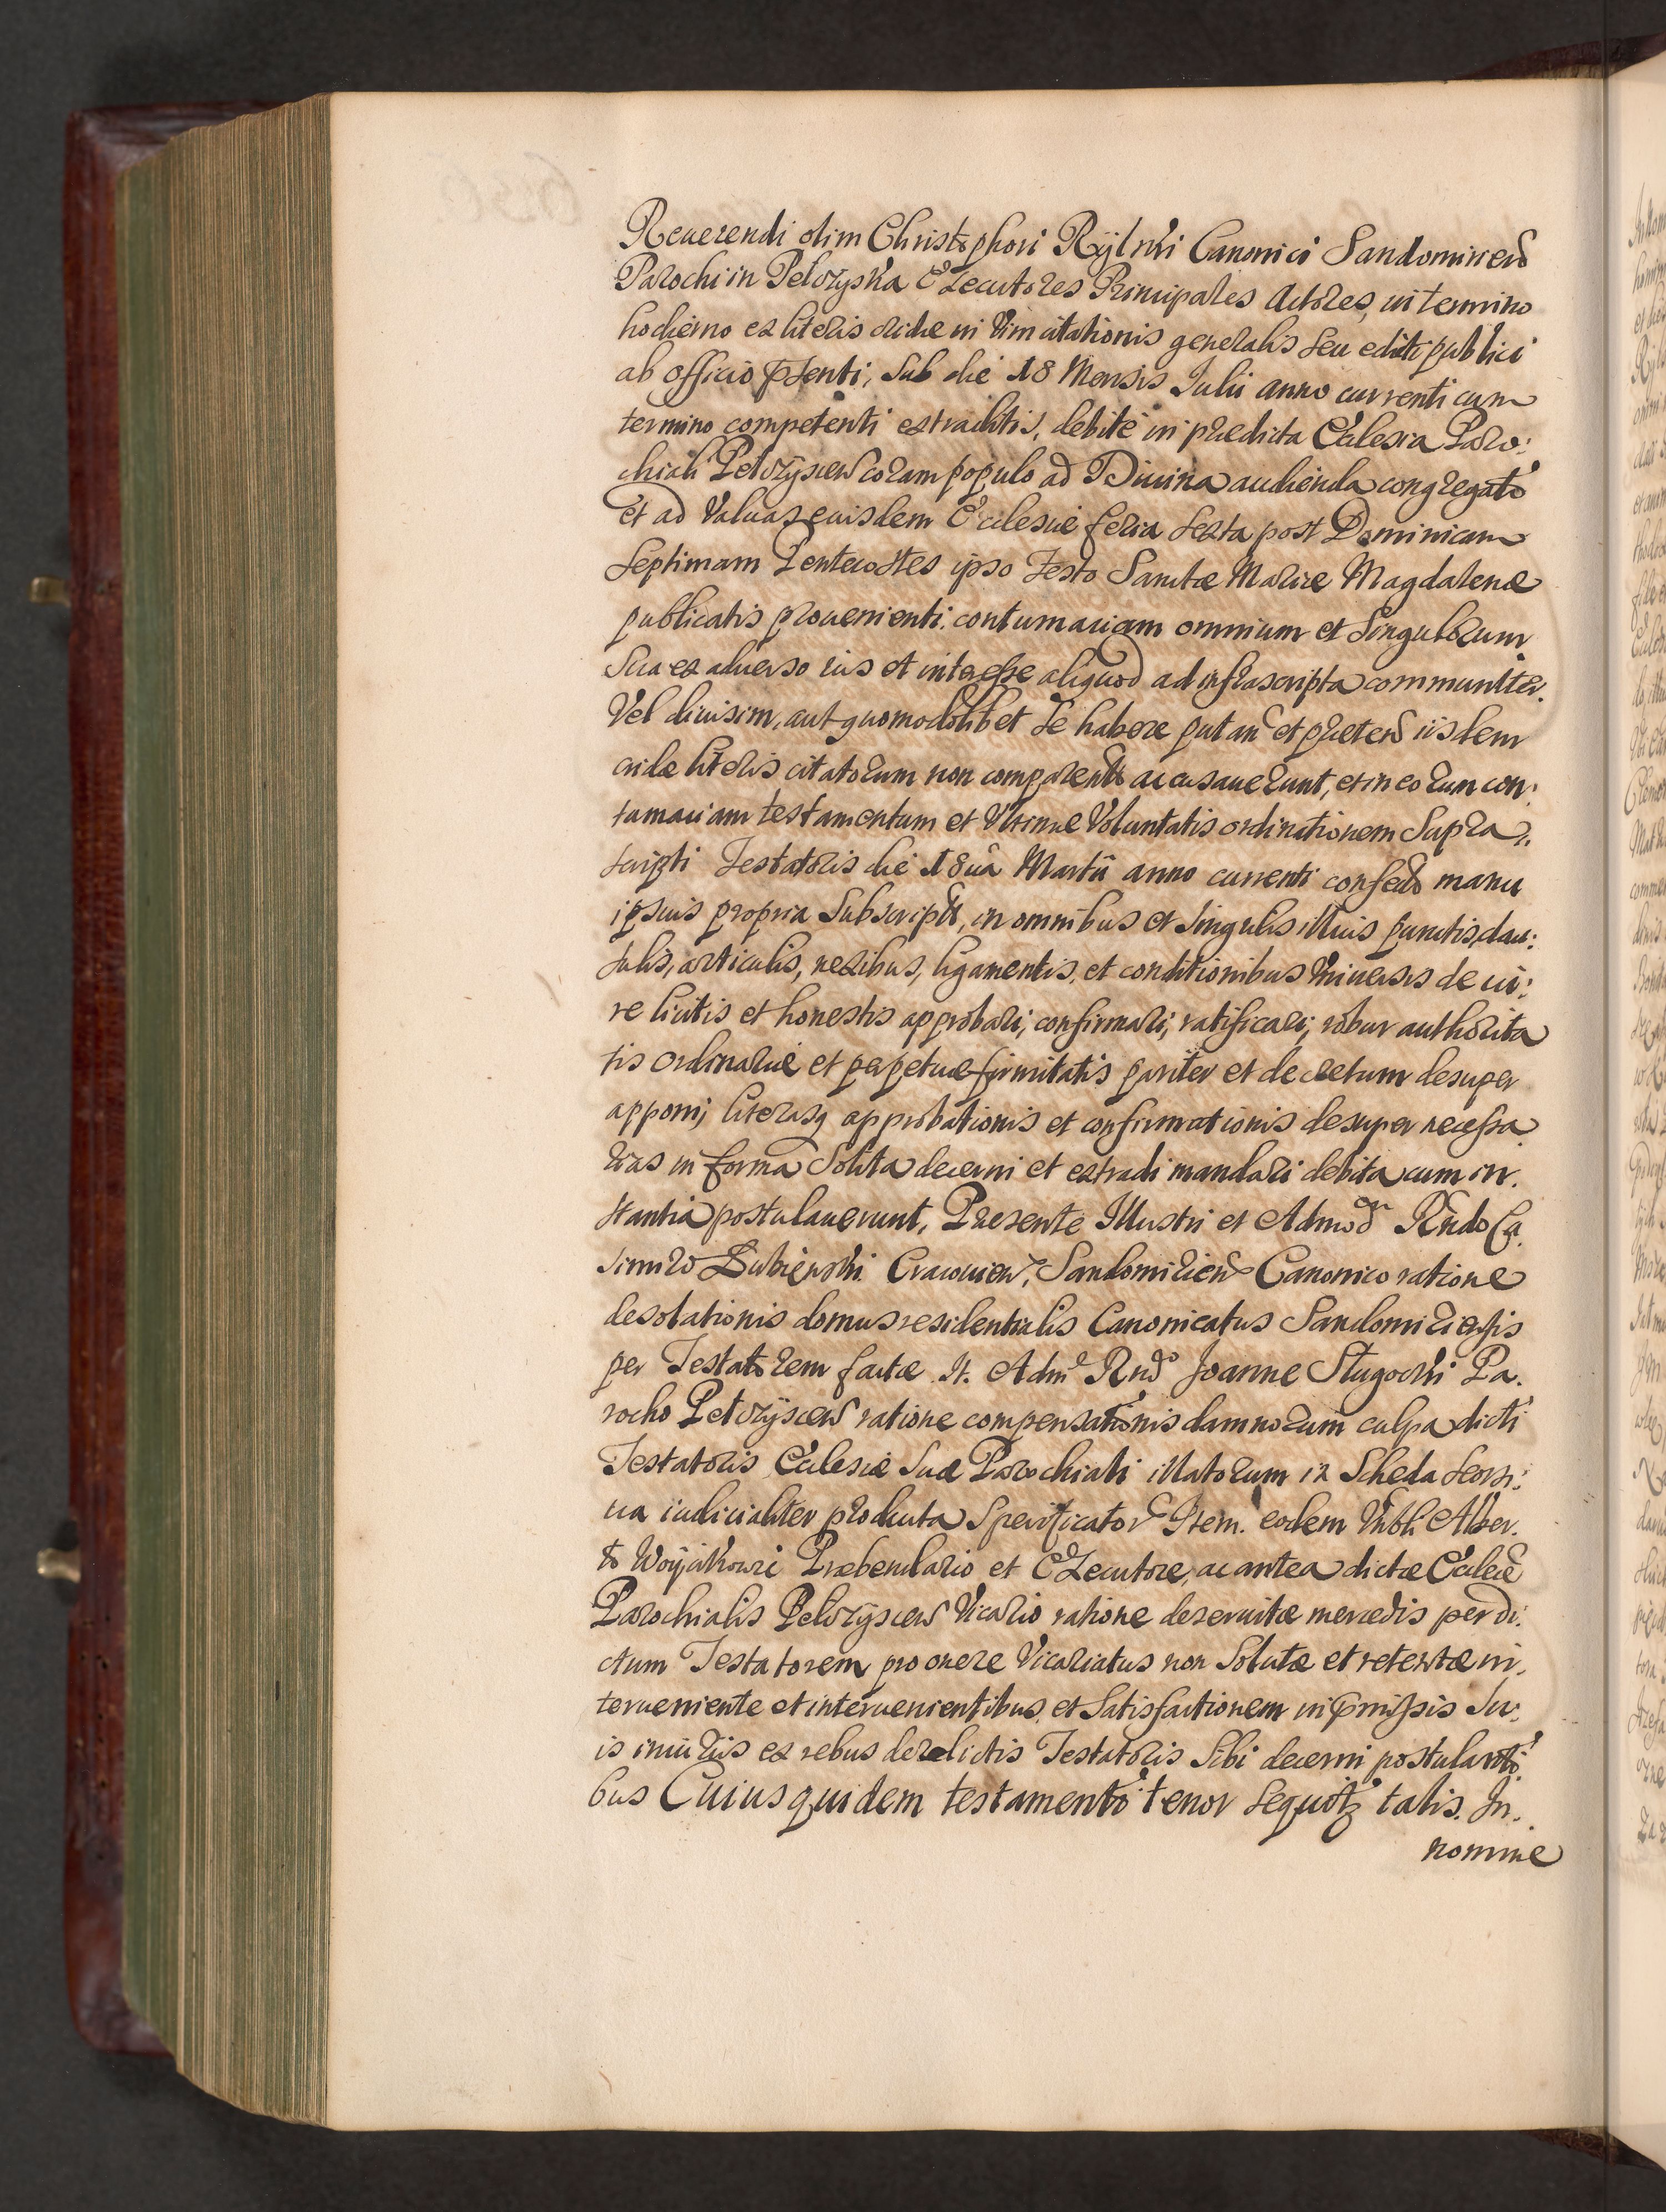 Reuerendi olim Christophori Rÿlski Canonici Sandomirien̄
Parochi in Pelczyska Executores Principales Actores, in termino
hodierno ex literis cridæ in vim citationis generalis seu edicti publici
ab officio p̄senti, sub die 18 Mensis Julii anno currenti cum
termino competenti extraditis, debitè in prædicta Ecclesia Paro:
chiali Pelczÿscen̄ coram populo ad Diuina audienda congregato
et ad Valuas euisdem Ecclesiæ feria sexta post Dominicam
Septimam Pentecostes ipso Festo Sanctæ Mariæ Magdalenæ
publicatis prouenienti. contumaciam omnium et Singulorum
Sua ex aduerso ius et interesse aliquod ad infrascripta communiter.
Vel diuisim, aut quomodolibet se habere putan̄ et præten̄ iisdem
cridæ literis citatorum non comparentiū accusauerunt, et in eorum con:
tumaciam testamentum et Vltimæ Voluntatis ordinationem Supra
scripti Testatoris die 18ua Martii anno currenti confectū manu
ipsius propria Subscriptū, in omnibus et singulis illius punctis, clau:
sulis, articulis, nexibus, ligamentis, et conditionibus Vniuersis de iu:
re licitis et honestis approbari, confirmari, ratificari, robur authorita
tis ordinariæ et perpetuæ firmitatis pariter et decretum desuper
apponi, literasq approbationis et confirmationis desuper necessa
rias in forma Solita decerni et extradi mandari debita cum in.
stantia postulauerunt, Præsente Illustri et Admod̄ Rn̄do Ca.
simiro Łubieński Cracouien̄, Sandomirien̄ Canonico ratione
desolationis domus residentialis Canonicatus Sandomiriensis
per Testatorem factæ. It. Adm̄ Rnd̄o Joanne Sługocki Pa.
rocho Pelczÿscen̄ ratione compensationis damnorum culpa dicti
Testatoris Ecclesiæ suæ Parochiali illatorum in Scheda seorsi:
ua iudicialiter producta Specificator̄ Item. eodem Vn̄bli Alber.
to Woÿcikowic Præbendario et Executore, ac antea dictæ Eccleæ
Parochialis Pelczÿscen̄ Vicario ratione deseruitæ mercedis per di:
ctum Testatorem pro onere Vicariatus non Solutæ et retentæ in.
terueniente et interuenientibus, et Satisfactionem in p̄missis Su:
is iniuriis ex rebus derelictis Testatoris Sibi decerni postulanti.
bus Cuius quidem testamenti tenor sequitz talis. In.
nomine